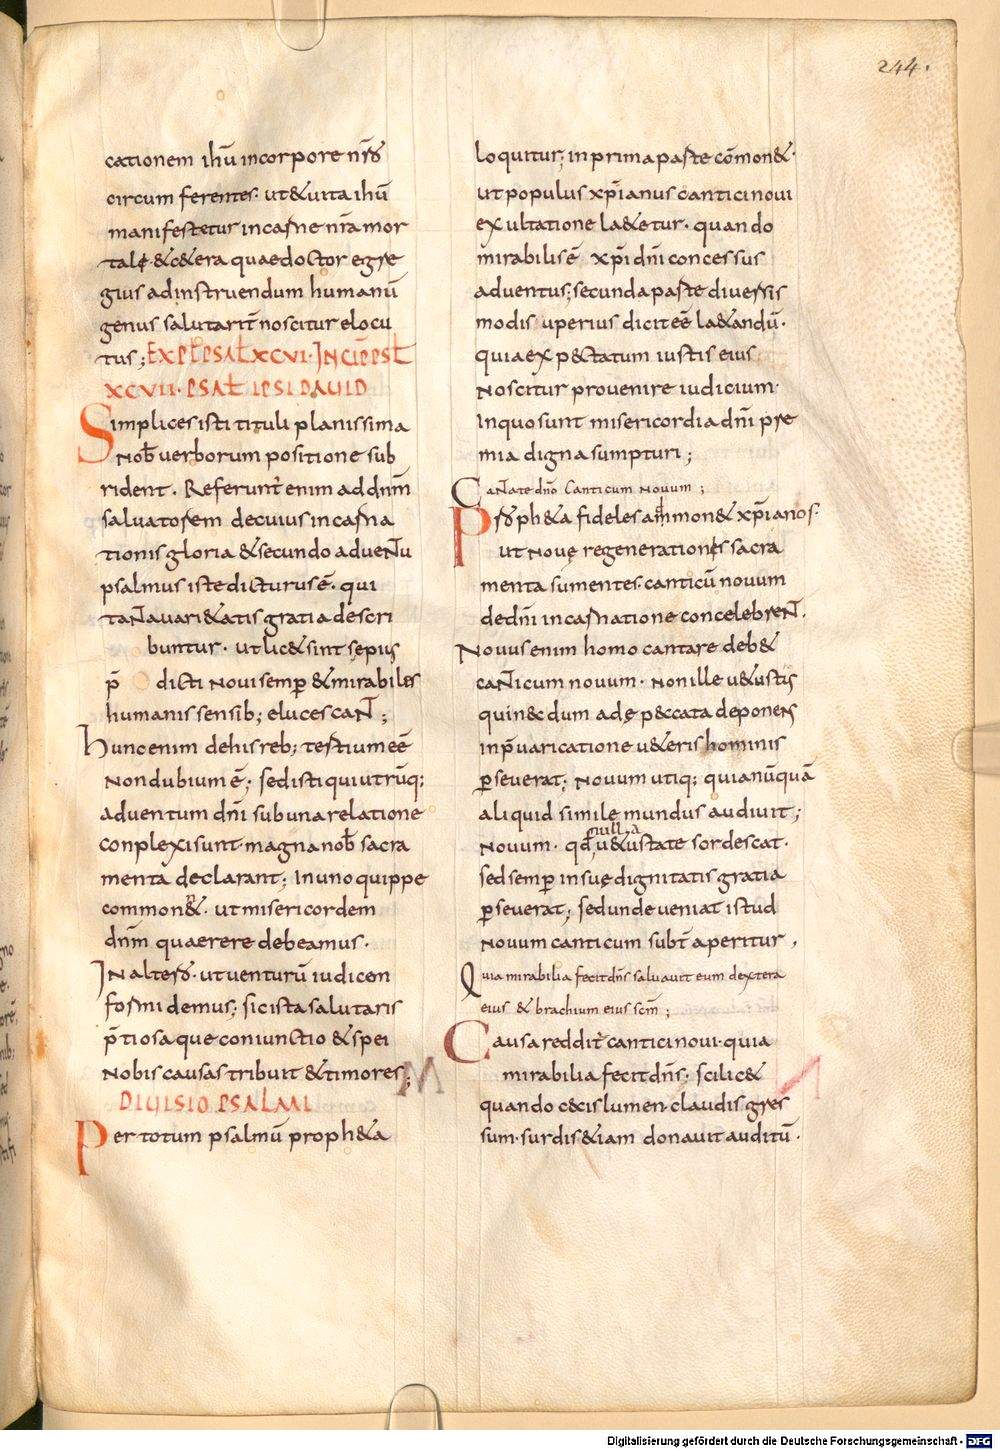 244.
cationem ihū incorpore nr̄o
circum ferentes. ut&uita ihū
manifestetur incarne nr̄a mor
tale &c&era quae doctor egre
gius adinstruendum humanū
genus salutarit̄ noscitur elocu
tus; EXPL PSAL XCVI. INCIP PSL
XCVII. PSAL IPSI DAUID
Simplices isti tituli planissima
nob̄ uerborum positione sub
rident. Referunt̄ enim ad dnm̄
saluatorem decuius incarna
tionis gloria & secundo aduentu
psalmus iste dicturus ē. qui
tanta uari&atis gratia descri
buntur. ut lic& sint sepius
p̄dicti noui semꝑ & mirabiles
humanis sensib; elucescant;
Hunc enim dehis reb; tertium eē
non dubium ē; sed isti qui utrūq;
aduentum dn̄i sub una relatione
conplexi sunt. magna nob̄ sacra
menta declarant; In uno quippe
common&. ut misericordem
dnm̄ quaerere debeamus.
In altero. ut uenturū iudicem
formidemus; sic ista salutaris
p̄tiosa que coniunctio & spei
nobis causas tribuit & timores;
DIUISIO PSALMI
Per totum psalmū proph&a
loquitur; in prima parte cōmon&.
ut populus xp̄ianus cantici noui
exultatione la&etur. quando
mirabilis ē xp̄i dn̄i concessus
aduentus; secunda parte diuersis
modis uperius dicit eē la&andū.
quia exp&ctatum iustis eius
noscitur prouenire iudicium.
In quo sunt misericordia dn̄i pre
mia digna sumpturi;
Cantate dn̄o Canticum nouum;
Pro proph&a fideles ammon& xp̄ianos.
ut noue regenerationis sacra
menta sumentes. canticū nouum
de dn̄i incarnatione concelebrent.
Nouus enim homo cantare deb&
canticum nouum. non ille u&ustus
qui nec dum ade p&ccata deponens
in p̄uaricatione u&eris hominis
ꝑseuerat; Nouum utiq; quia nūquā
aliquid simile mundus audiuit;
nulla
Nouum. qđ u&ustate sordescat.
sed semꝑ in sue dignitatis gratia
ꝑseuerat; sed unde ueniat istud
nouum canticum subt̄ aperitur,
Quia mirabilia fecit dn̄s saluauit eum dextera
eius & brachium eius scm̄;
Causa reddit̄ cantici noui. quia
mirabilia fecit dn̄s. scilic&
quando cecis lumen. claudis gres
sum. surdis &iam donauit auditū.
Digitalisierung gefördert durch die Deutsche Forschungsgemeinschaft - DFG